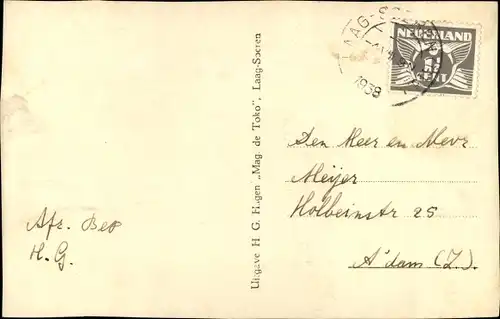 LAAG-SOEREN
1938
NEDERLAND
1½
CENT
Den Heer en Mevr
Meijer
Holbeinstr 25
A'dam (Z.).
Afz. Bep
H. G.
Uitgave H G. Hagen „Mag. de Toko", Laag-Soeren